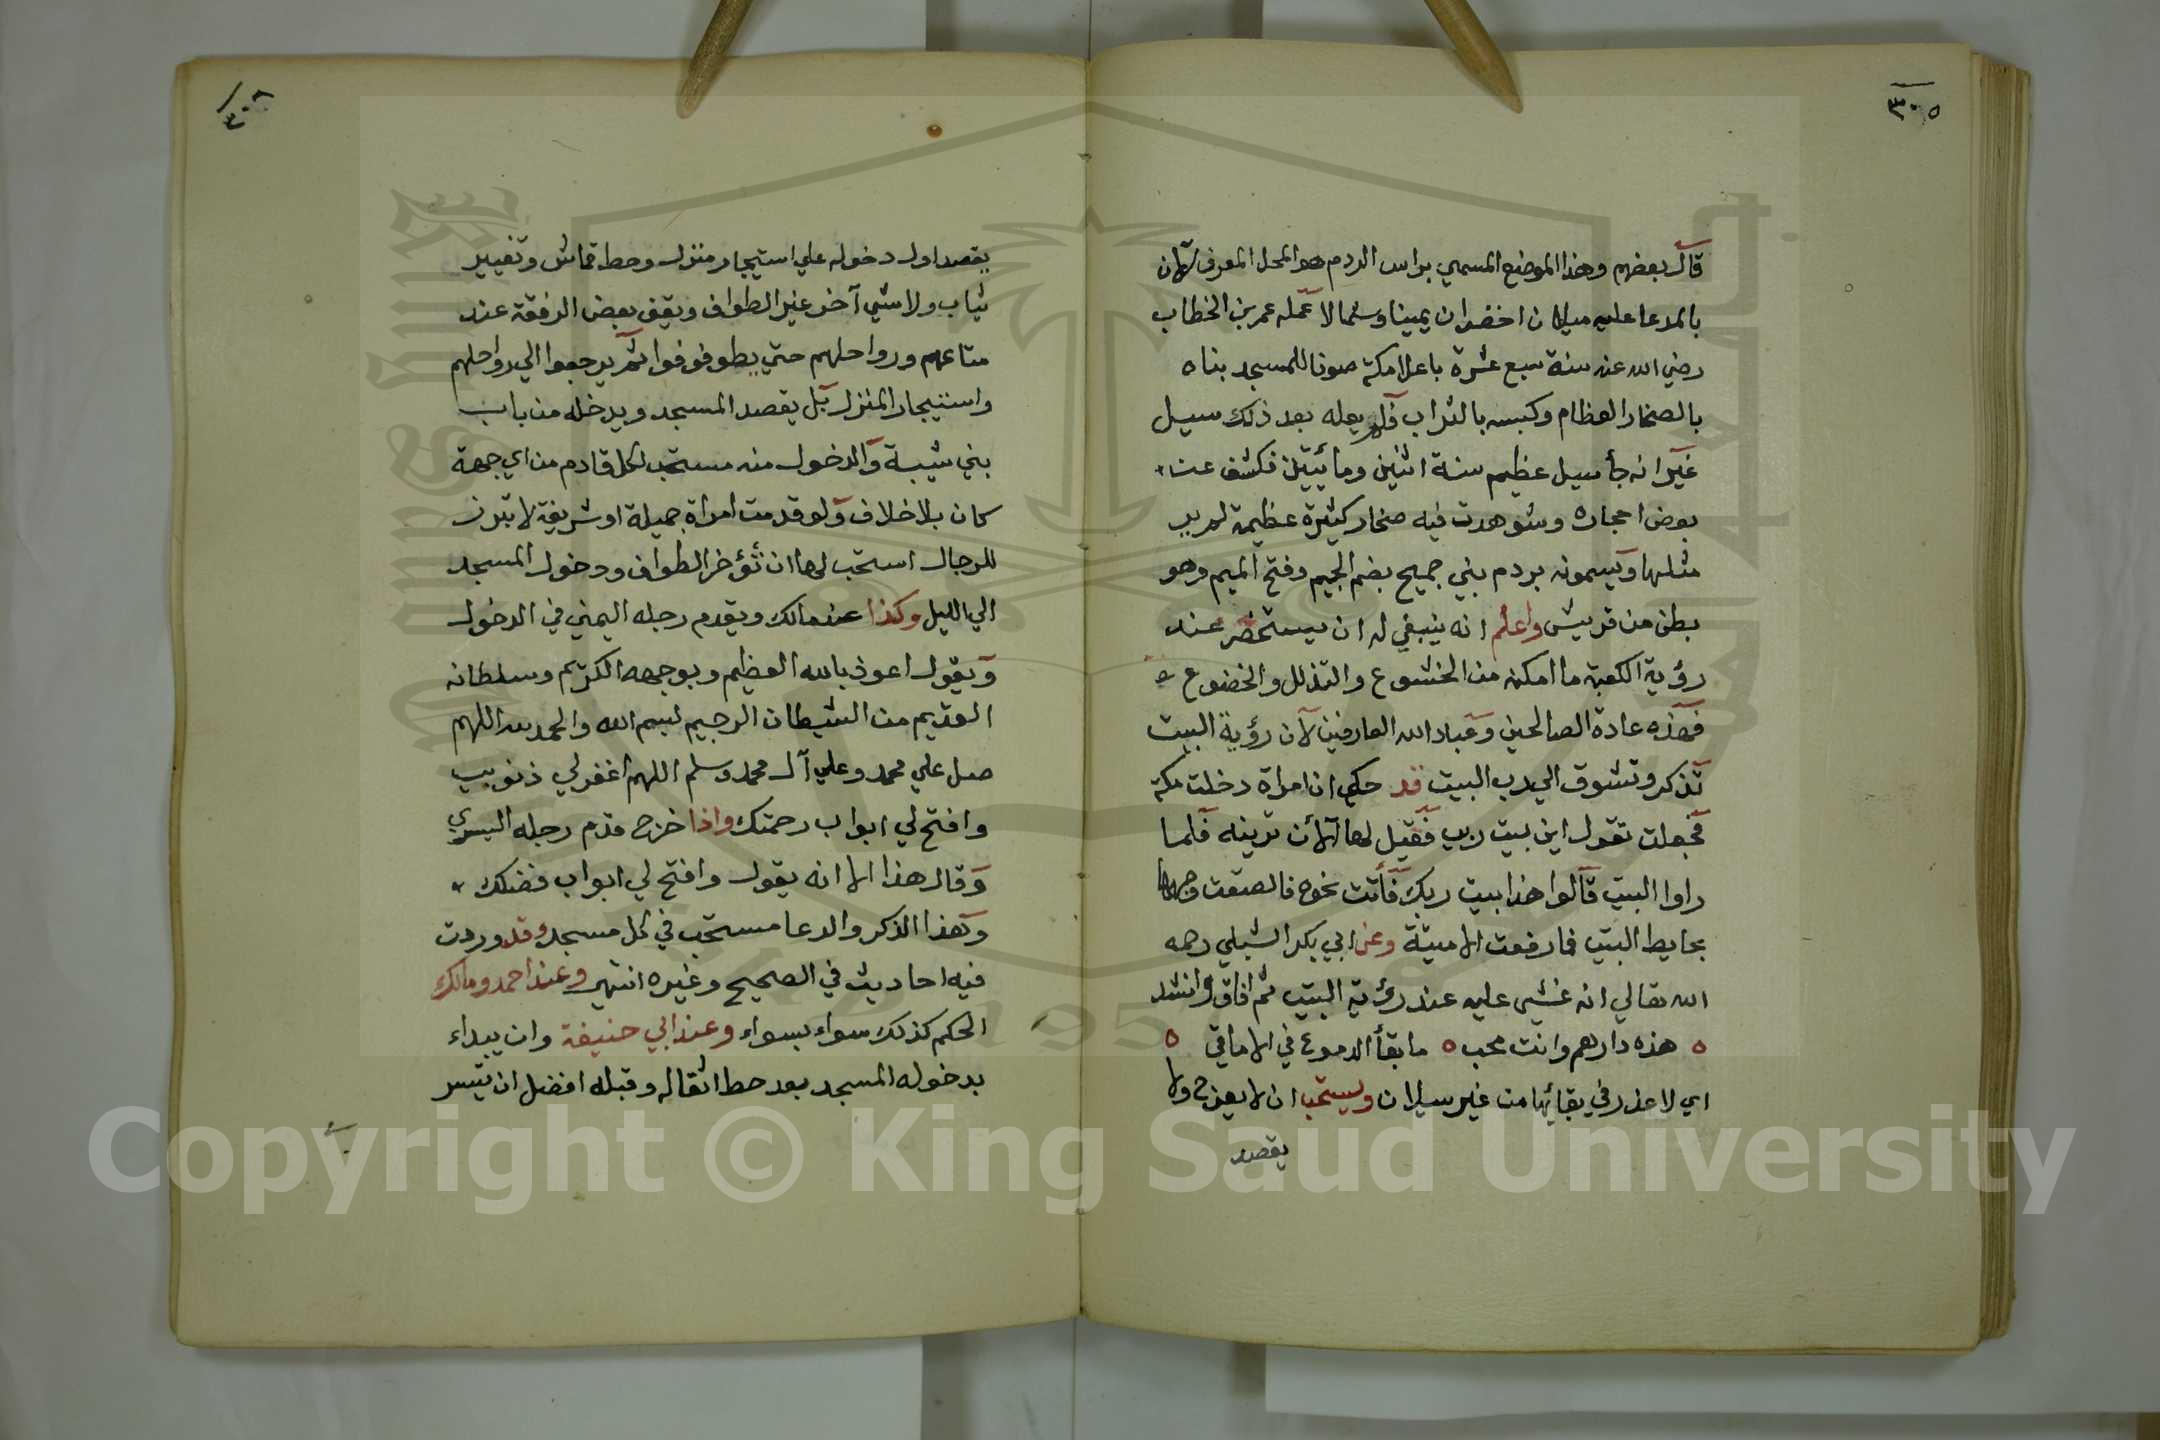 ٣٠٥
قال بعضهم وهذا الموضع المسمي براس الردم هو المحل المعرف الآن
بالمدعا عليه ميلان اخضران يمينا وشمالا عمله عمر بن الخطاب
رضي الله عنه سنة سبع عشرة باعلا مكة صونا للمسجد بناه
بالصخار العظام وكبسه بالتراب فلم يعله بعد ذلك سيل
غير انه جأ سيل عظيم سنة اثنين ومائيتين فكشف عن
بعض احجاره وشوهدت فيه صخار كثيرة عظيمة لم ير
مثلها ويسمونه بردم بني جميح بضم الجيم وفتح الميم وهو
بطن من قريش واعلم انه ينبغي له ان يستحضر عند
رؤية الكعبة ما امكنه من الخشوع والتذلل والخضوع
فهذه عادة الصالحين وعباد الله العارفين لان رؤية البيت
تذكر وتشوق الي رب البيت قد حكي ان امراة دخلت مكة
فجعلت تقول اين بيت ربي فقيل لها الآن ترينه فلما
راوا البيت قالوا هذا بيت ربك فأتت نحوه فالصقت وجهها
بحايط البيت فما رفعت الا ميتة وعن ابي بكر الشبلي رحمه
الله تعالي انه غشي عليه عند رؤية البيت ثم افاق وانشد
ه هذه دارهم وانت محب ه ما بقأ الدموع في الاماقي ه
اي لا عذر في بقائها من غير سيلان ويستحب ان لا يعرج ولا
يقصد
٣٠٦
يقصد اول دخوله علي استيجار منزل وحط قماش وتغيير
ثياب ولا شي آخر غير الطواف ويقف بعض الرفقة عند
متاعهم ورواحلهم حتي يطوفوفوا ثم يرجعوا الي رواحلهم
واستيجار المنزل بل يقصد المسجد ويدخله من باب
بني شيبة والدخول منه مستحب لكل قادم من اي جهة
كان بلا خلاف ولو قدمت امراة جميلة او شريفة لا تبرز
للرجال استحب لها ان تؤخر الطواف ودخول المسجد
الي الليل وكذا عند مالك ويقدم رجله اليمني في الدخول
ويقول اعوذ بالله العظيم وبوجهه الكريم وسلطانه
القديم من الشيطان الرجيم بسم الله والحمد لله اللهم
صل علي محمد وعلي آل محمد وسلم اللهم اغفر لي ذنوبي
وافتح لي ابواب رحمتك واذا خرج قدم رجله اليسري
وقال هذا الا انه يقول وافتح لي ابواب فضلك
وهذا الذكر والدعا مستحب في كل مسجد وقد وردت
فيه احاديث في الصحيح وغيره انتهي وعند احمد ومالك
الحكم كذلك سواء بسواء وعند ابي حنيفة وان يبداء
بدخوله المسجد بعد حط اثقاله وقبله افضل ان تيسر
Copyright © King Saud University